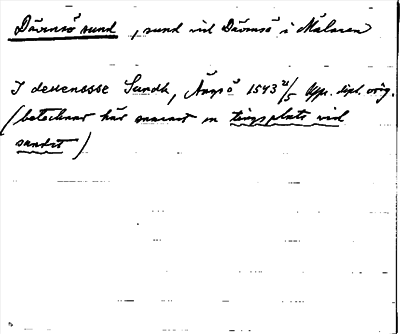 Dävensö sund, sund vid Dävensö i Mälaren
I deuenessse Sundh, Ängsö 1543 21/5 Upps. dipl. orig.
(betecknar här snarast en tingsplats vid
sundet)